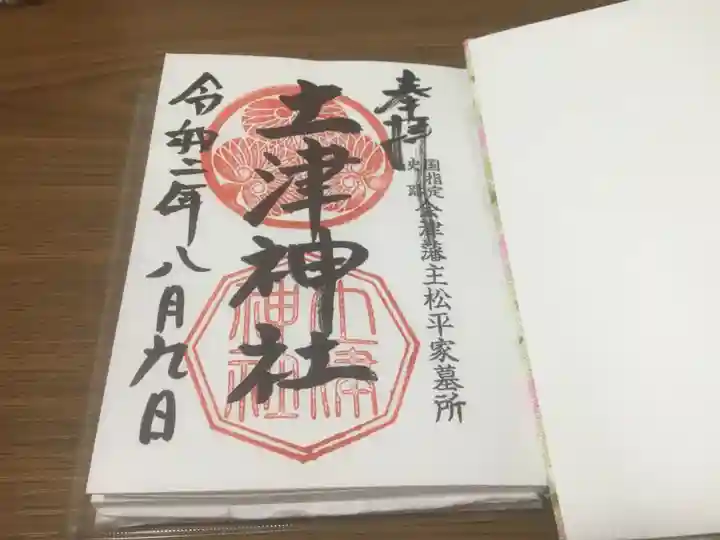 奉拝
国指定
史跡
会津藩主松平家墓所
土津神社
土津
神社
令和二年八月九日